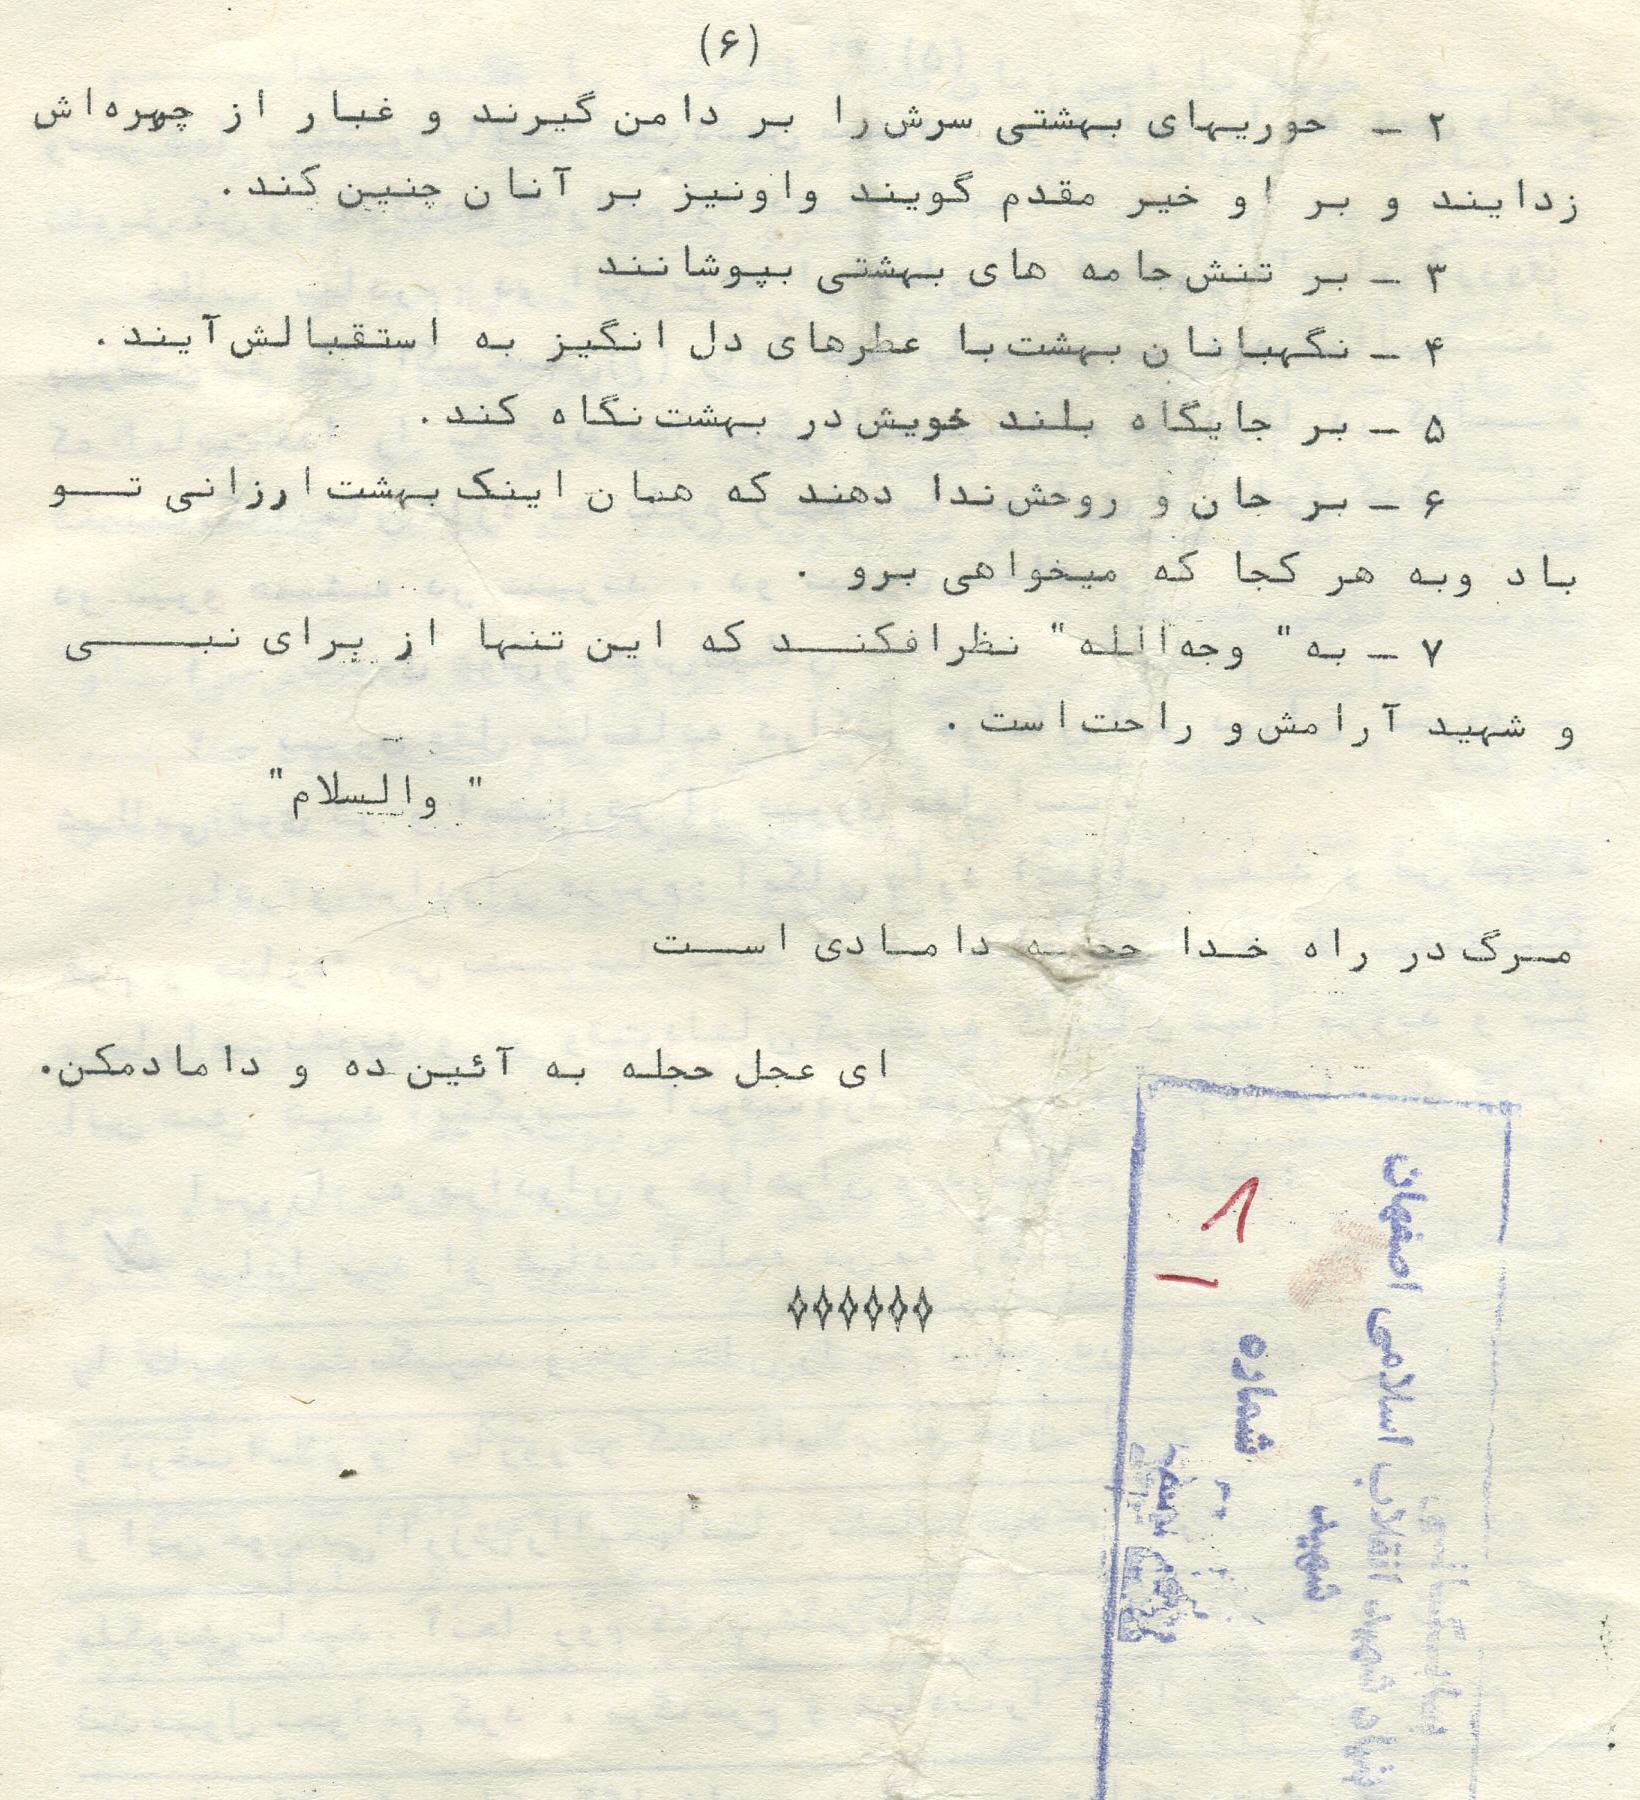 (۶)
۲ - حوریهای بهشتی سرش را بر دامن گیرند و غبار از چهره‌اش
زدایند و بر او خیر مقدم گویند واونیز بر آنان چنین کند.
۳ - بر تنش جامه های بهشتی بپوشانند
۴ - نگهبانان بهشت با عطرهای دل انگیز به استقبالش آیند.
۵ - بر جایگاه بلند خویش در بهشت نگاه کند.
۶ - بر جان و روحش ندا دهند که همان اینک بهشت ارزانی تو
باد وبه هر کجا که میخواهی برو .
۷ - به " وجه الله" نظر افکند که این تنها از برای نبی
و شهید آرامش و راحت است .
" والسلام"
مرگ در راه خدا حجله دامادی است
ای عجل حجله به آئین ده و دامادمکن.
بنیاد شهید انقلاب اسلامی اصفهان
شهید
شماره
۱